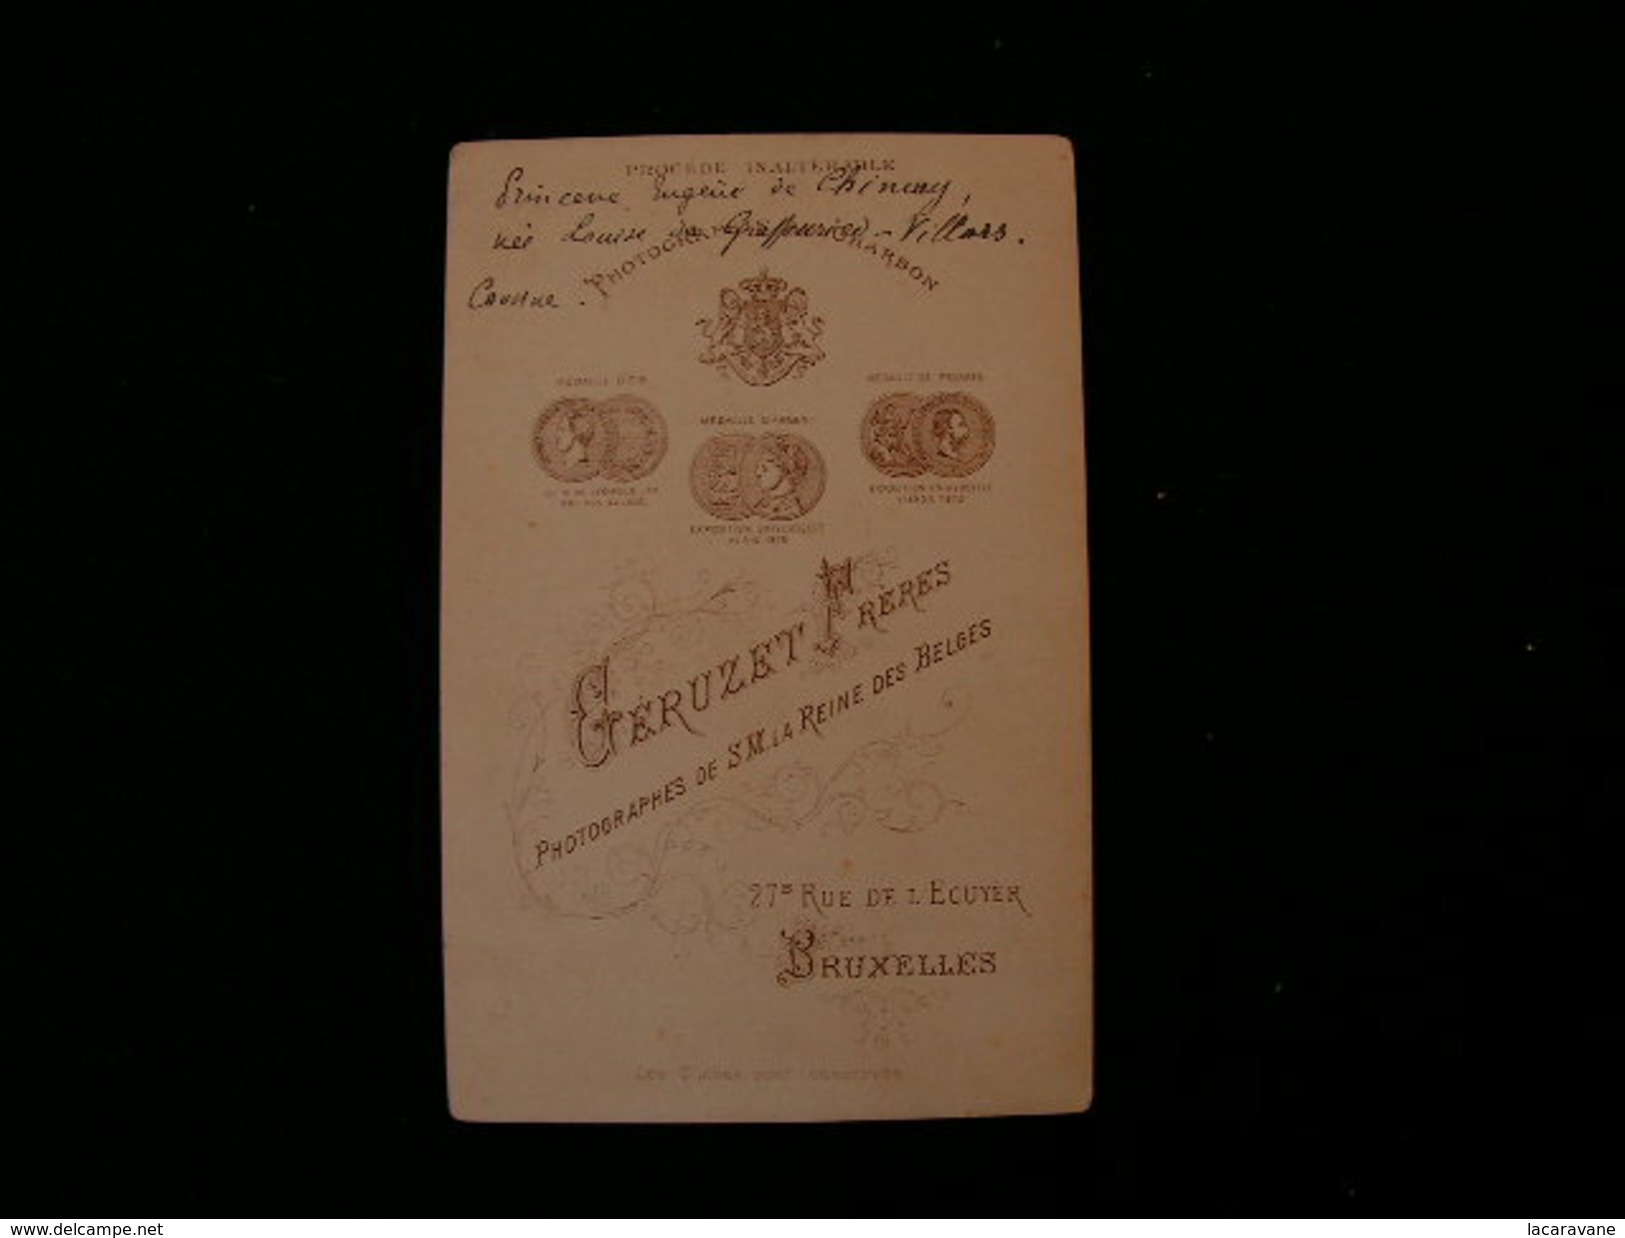 PROCÉDÉ INALTÉRABLE
Princesse Eugène de Chimay,
née Louise de Graffenried-Villars.
Cousine.
PHOTOGRA CHARBON
MÉDAILLE D'OR
MÉDAILLE D'ARGENT
MÉDAILLE DE PROGRÈS
EXPOSITION UNIVERSELLE
EXPOSITION UNIVERSELLE
GÉRUZET FRÈRES
PHOTOGRAPHES DE S.M. LA REINE DES BELGES
27B RUE DE L'ECUYER
BRUXELLES
www.delcampe.net
lacaravane